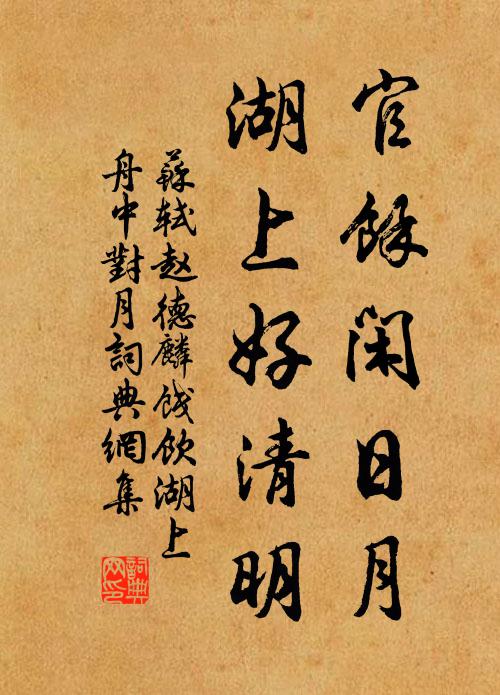 官餘闲日月
湖上好清明
蘇軾赵德麟餞飲湖上
舟中對月詞典網集
詞典网印